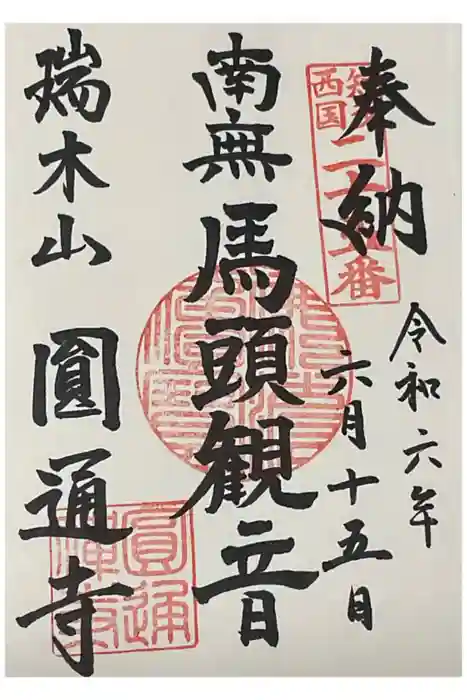 奉納
令和六年
六月十五日
南無馬頭観音
瑞木山 圓通寺
西国
番